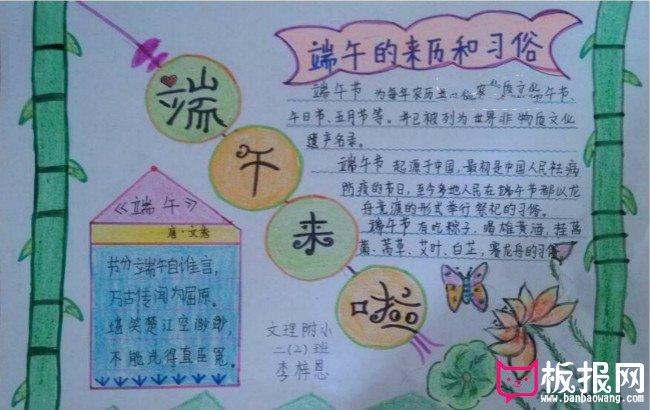 端午的来历和习俗
端午来啦
端午节 为每年农历五 农 质文化 午节、
午日节、五月节等。并已被列为世界非物质文化
遗产名录。
端午节 起源于中国,最初是中国人民祛病
防疫的节日,至今各地人民在端午节都以龙
舟竞渡的形式举行祭祀的习俗。
端午节 有吃粽子,喝雄黄酒,挂菖
蒲、蒿草、艾叶、白芷,赛龙舟的习俗
《端午》
唐·文秀
节分端午自谁言,
万古传闻为屈原。
堪笑楚江空渺渺,
不能洗得直臣冤。
文理附小
二(2)班
李梓恩
板报网
www.banbaowang.com